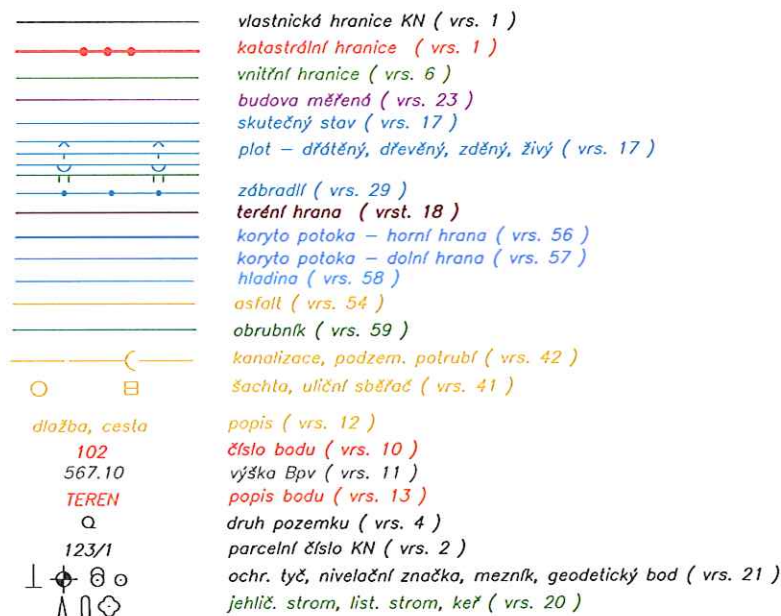 vlastnická hranice KN ( vrs. 1 )
katastrální hranice ( vrs. 1 )
vnitřní hranice ( vrs. 6 )
budova měřená ( vrs. 23 )
skutečný stav ( vrs. 17 )
plot – dřátěný, dřevěný, zděný, živý ( vrs. 17 )
zábradlí ( vrs. 29 )
teréní hrana ( vrst. 18 )
koryto potoka – horní hrana ( vrs. 56 )
koryto potoka – dolní hrana ( vrs. 57 )
hladina ( vrs. 58 )
asfalt ( vrs. 54 )
obrubník ( vrs. 59 )
kanalizace, podzem. potrubí ( vrs. 42 )
šachta, uliční sběřač ( vrs. 41 )
dlažba, cesta popis ( vrs. 12 )
102 číslo bodu ( vrs. 10 )
567.10 výška Bpv ( vrs. 11 )
TEREN popis bodu ( vrs. 13 )
druh pozemku ( vrs. 4 )
123/1 parcelní číslo KN ( vrs. 2 )
ochr. tyč, nivelační značka, mezník, geodetický bod ( vrs. 21 )
jehlič. strom, list. strom, keř ( vrs. 20 )